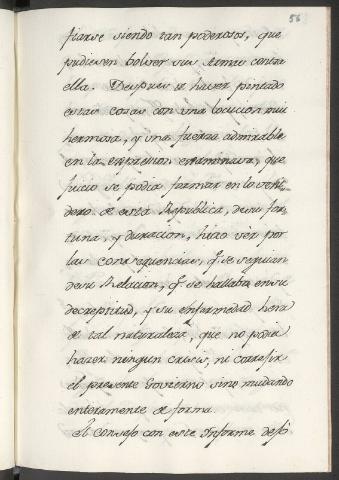 56
fiarse siendo tan poderosos, que
pudiesen bolver sus Armas contra
ella. Despues de haver pintado
estas cosas con una locucion mui
hermosa, y una fuerza admirable
en la expresion examinava, que
juicio se podia formar en lo
dero de esta Republica, de su for-
tuna, y duracion, hizo vèr por
las consequencias, q.e se seguian
de su Relacion, q.e se hallaba en su
decrepitud, y su enfermedad hera
de tal naturaleza, que no podia
hazer ningun crisis, ni corregir
el presente Govierno sino mudando
enteramente de forma.
El Consejo con este Informe deso